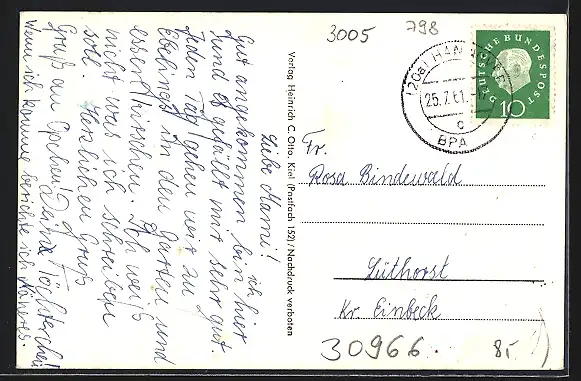 3005
798
DEUTSCHE BUNDESPOST
10
(20a) HANNOVER
25.7.61.
c
BPA
Verlag Heinrich C. Otto, Kiel (Postfach 152) / Nachdruck verboten
Liebe Mami!
Gut angekommen bin ich hier
und es gefällt mir sehr gut.
Jeden Tag gehen wir zu
Ebelings in den Garten und
essen Kirschen. Ich weiß
nicht was ich schreiben
soll. Herzlichen Gruß
Gruß an Opchen! Dein Töchterchen
Wenn ich komme berichte ich Näheres.
Fr.
Rosa Bindewald
Lüthorst
Kr. Einbeck
30966
8,-